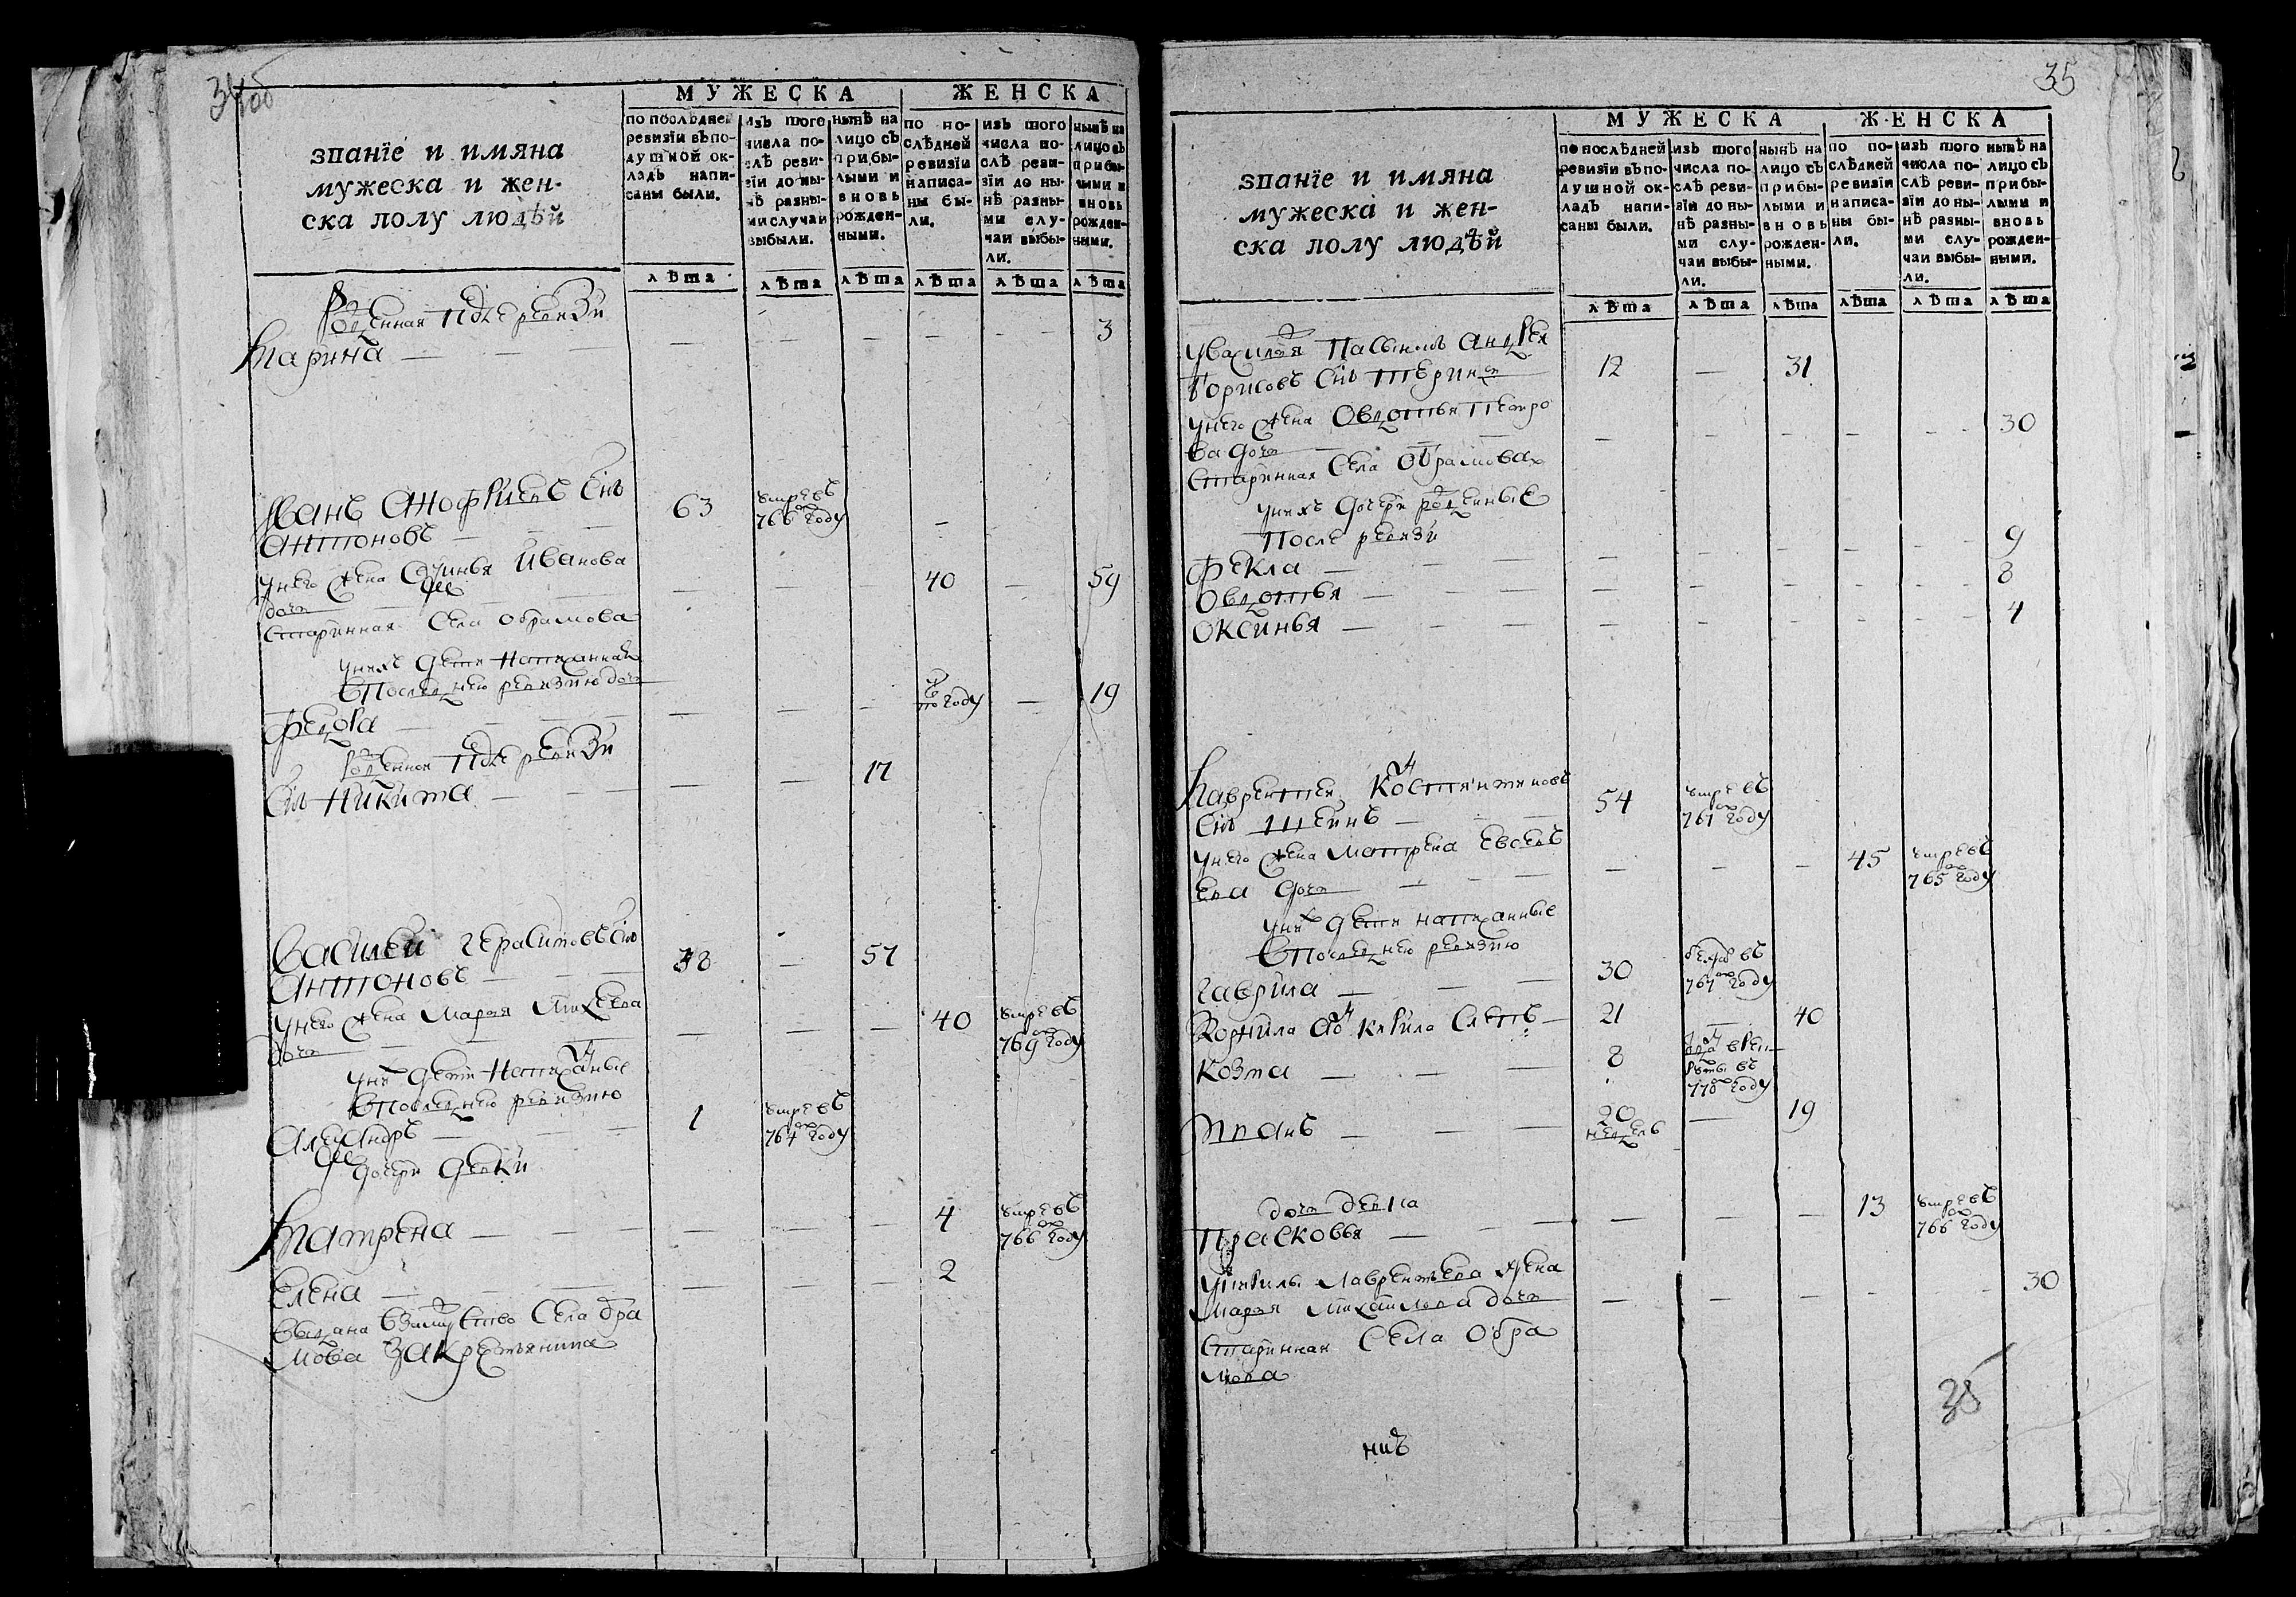 МУЖЕСКА ЖЕНСКА
званіе и имяна
мужеска и жен-
ска полу людѣй
по послѣдней
ревизіи въ по-
душной ок-
ладъ напи-
саны были.
изъ того
числа по-
слѣ реви-
зіи до ны-
нѣ разны-
ми случаи
выбыли.
нынѣ на
лицо съ
прибы-
лыми и
вновь
рожден-
ными.
по по-
слѣдней
ревизіи
написа-
ны бы-
ли.
изъ того
числа по-
слѣ реви-
зіи до ны-
нѣ разны-
ми слу-
чаи выбы-
ли.
нынѣ на
лицо съ
прибы-
лыми и
вновь
рожден-
ными.
лѣта лѣта лѣта лѣта лѣта лѣта
рожденная после ревизи
Марина — — — — — — — 3
Иванъ Анофриевъ снъ
Антоновъ — 63 умре въ 766 году
у него жена Аксинья Иванова
дочь — — — 40 — 59
старинная села Абрамова
у нихъ дети написанная
в последнею ревизию дочь
Федора — — — году — 19
рожденной после ревизи
снъ Никита — — — 17
Василей Герасимовъ снъ
Антоновъ — 38 — 57
у него жена Марья Михеева
дочь — — — 40 умре въ 769 году
у них дети написанные
в последнею ревизию
Александръ — 1 умре въ 764 году
дочери девки
Матрена — — — — 4 умре въ 766 году
Елена — — — — 2
выдана в замужство села Обра
мова за крестьянина
35
МУЖЕСКА ЖЕНСКА
званіе и имяна
мужеска и жен-
ска полу людѣй
по послѣдней
ревизіи въ по-
душной ок-
ладъ напи-
саны были.
изъ того
числа по-
слѣ реви-
зіи до ны-
нѣ разны-
ми слу-
чаи выбы-
ли.
нынѣ на
лицо съ
прибы-
лыми и
вновь
рожден-
ными.
по по-
слѣдней
ревизіи
написа-
ны бы-
ли.
изъ того
числа по-
слѣ реви-
зіи до ны-
нѣ разны-
ми слу-
чаи выбы-
ли.
нынѣ на
лицо съ
прибы-
лыми и
вновь
рожден-
ными.
лѣта лѣта лѣта лѣта лѣта лѣта
у Василья пасынокъ Андрей
Борисовъ снъ 12 — 31
у него жена Овдотья Петро
ва дочь — — — — — 30
старинная села Обрамова
у нихъ дочери рожденные
после ревизи
Фекла — — — — — — 9
Овдотья — — — — — — 8
Оксинья — — — — — — 4
Лаврентей Костянтиновъ
снъ — 54 умре въ 761 году
у него жена Матрена Евсевъ
ева дочь — — — — 45 умре въ 765 году
у них дети написанные
в последнею ревизию
Гаврила — 30 бежав въ 767 году
Корнила он Кирила 21 — 40
Козма — 8 отдан в рекруты въ 770 году
Иванъ — 20 недель — 19
дочь девка
Прасковья — — — — 13 умре въ 766 году
Лаврентьева жена
Марья Михаилова дочь — — — — — 30
старинная села Обра
мова
38